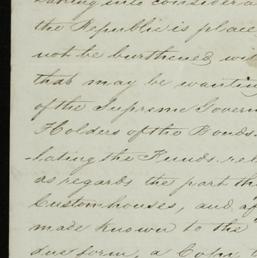 taking into considera
the Republic is place
not be burthened wi
that may be wantin
of the Supreme Govern
Holders of the Bonds
lating the Funds rel
as regards the part th
Customhouses, and af
made known to the
due form, a Copy t